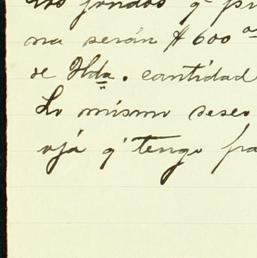 los fondos q' pu
na serán $ 600 00
de Hda. cantidad
Lo mismo deseo
ojá q' tengo fra